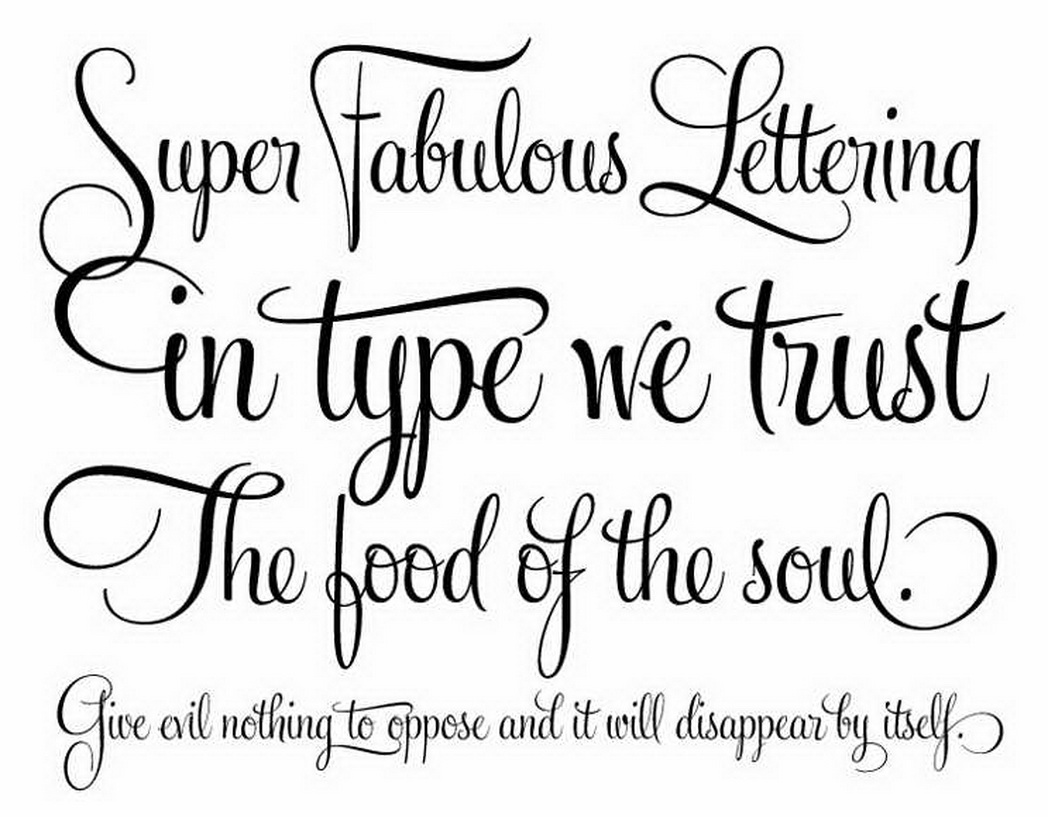 Super Fabulous Lettering
in type we trust
The food of the soul.
Give evil nothing to oppose and it will disappear by itself.